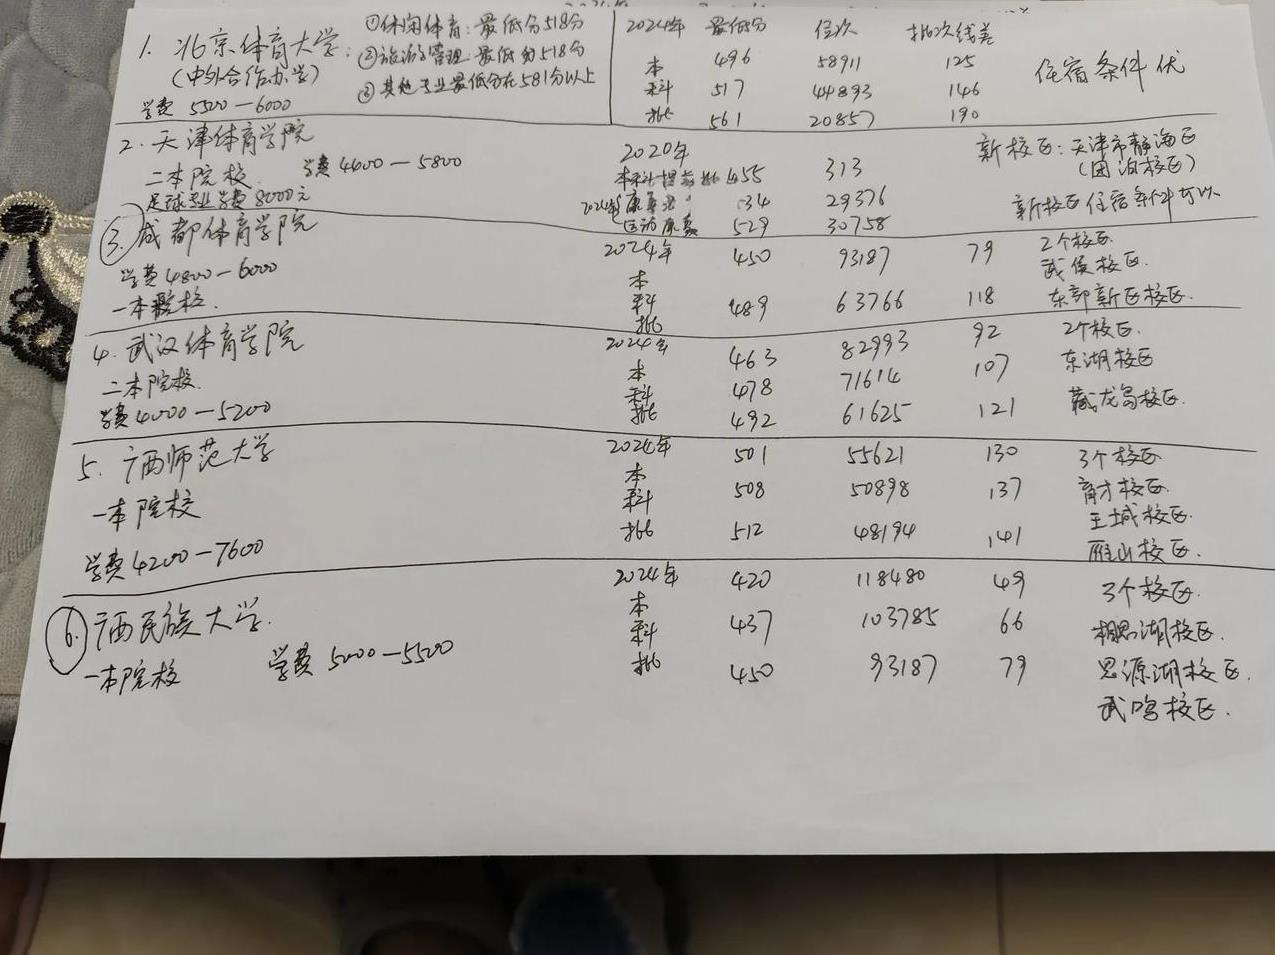 1. 北京体育大学: ①休闲体育: 最低分518分 2024年 最低分 位次 批次线差
(中外合作办学) ②旅游管理: 最低分518分 本 496 58911 125 住宿条件优
③其他专业最低分在581分以上 科 517 44893 146
学费 5500—6000 批 561 20857 190
2. 天津体育学院 2020年 新校区: 天津市静海区
二本院校 学费 4400—5800 本科提前批 455 313 (团泊校区)
足球专业学费 8000元 2024年 康复 34 29376 新校区住宿条件可以
运动康复 529 30758
③. 成都体育学院 2024年 450 93187 79 2个校区
学费 4800—6000 本 武侯校区
一本院校. 科 489 63766 118 东部新区校区.
批
4. 武汉体育学院 2024年 463 82993 92 2个校区.
二本院校. 本 478 71614 107 东湖校区
科
学费 4000—5200 批 492 61625 121 藏龙岛校区.
5. 广西师范大学 2024年 501 55621 130 3个校区
一本院校 本 508 50898 137 育才校区.
科 王城校区.
学费 4200—7600 批 512 48194 141 雁山校区.
⑥. 广西民族大学. 2024年 420 118480 49 3个校区.
本
科 437 103785 66 相思湖校区.
一本院校 学费 5000—5500 批 450 93187 79 思源湖校区.
武鸣校区.